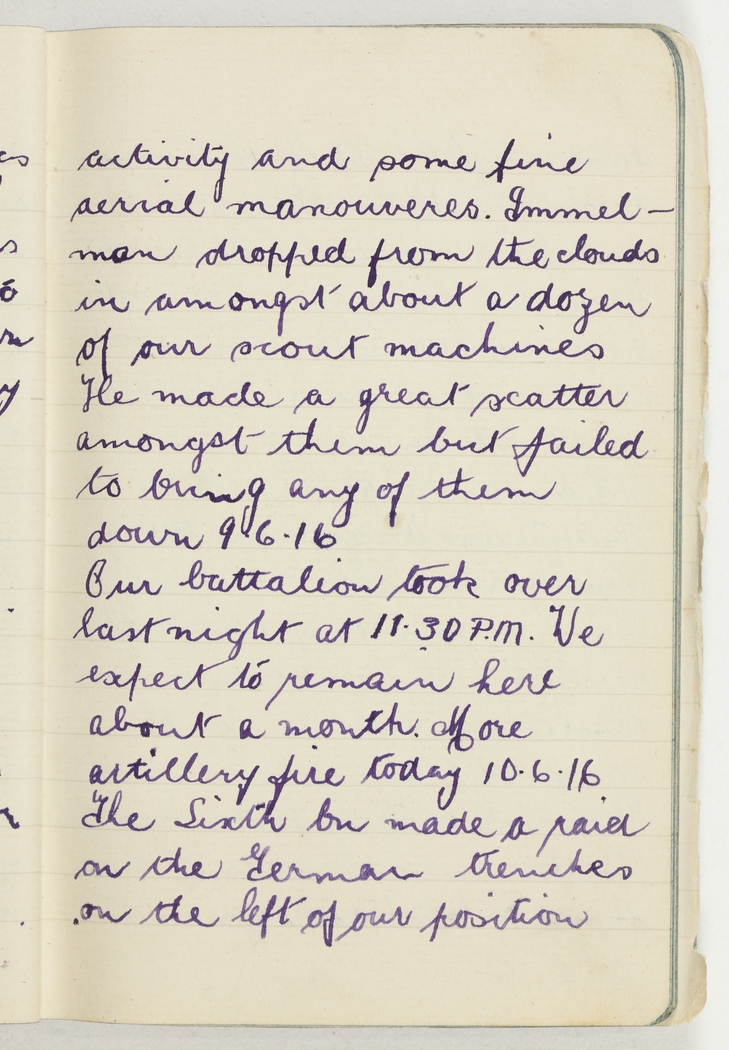 activity and some fine
aerial manouveres. Immel-
man dropped from the clouds
in amongst about a dozen
of our scout machines
He made a great scatter
amongst them but failed
to bring any of them
down 9.6.16
Our battalion took over
last night at 11.30 P.M. We
expect to remain here
about a month. More
artillery fire today 10.6.16
The Sixth bn made a raid
on the German trenches
on the left of our position